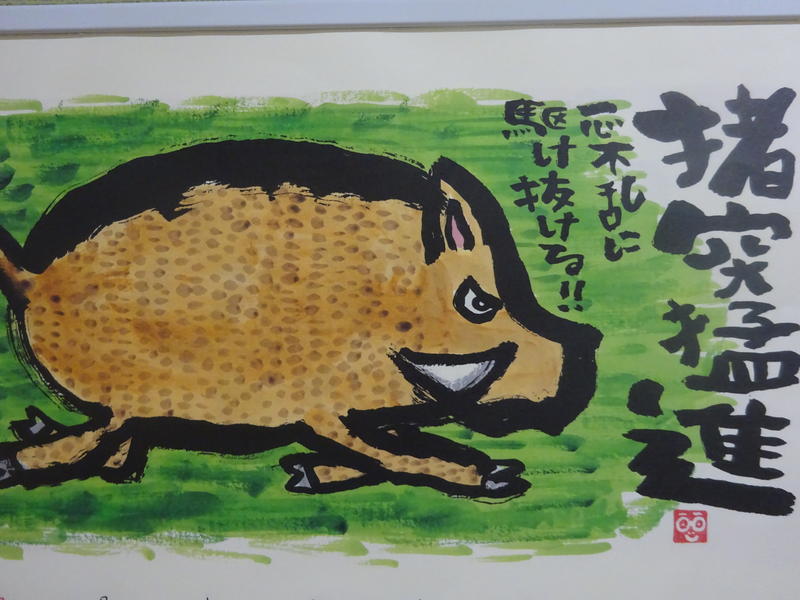 猪突猛進
一心不乱に
駆け抜ける!!